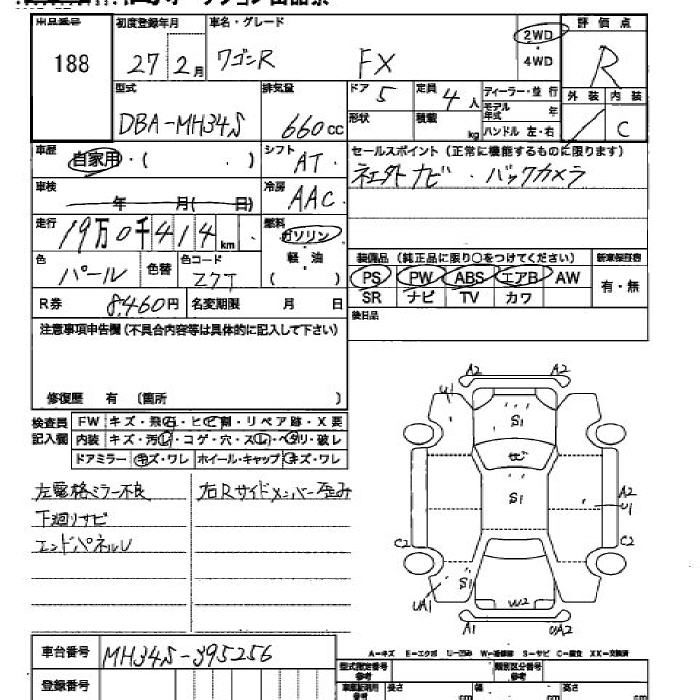 出品番号 初度登録年月 車名・グレード 2WD 評価点
188 27年2月 ワゴンR FX 4WD R
型式 排気量 ドア 5 定員 4人 ディーラー・並行 外装 内装
DBA-MH34S 660cc 形状 積載 kg モデル年式 年 ハンドル 左・右 C
車歴 自家用・( . ) シフト AT セールスポイント (正常に機能するものに限ります)
車検 年 月( 日) 冷房 AAC 社外ナビ・バックカメラ
走行 19万0千414km 燃料 ガソリン
軽油
( )
色 パール 色替 色コード Z7T
装備品 (純正品に限り○をつけてください) 新車保証書
PS PW ABS エアB AW 有・無
R券 8,460円 名変期限 月 日 SR ナビ TV カワ
注意事項申告欄(不具合内容等は具体的に記入して下さい) 後日品
修復歴 有 (箇所 )
検査員記入欄 FW キズ・飛石・ヒビ割・リペア跡・X要
内装 キズ・汚レ・コゲ・穴・スレ・ヘタリ・破レ
ドアミラー キズ・ワレ ホイール・キャップ キズ・ワレ
左電格ミラー不良 右Rサイドメンバー歪み
下廻りサビ
エンドパネルU
A2 A2
U1
S1
サビ
S1
A2
U1
C2 C2
S1
UA1 W2
A1 UA2
A-キズ E-エクボ U-凹み W-補修跡 S-サビ C-腐食 XX-交換済
車台番号 MH34S-395256
型式指定番号 参考 類別区分番号 参考
登録番号 車庫証明用 参考 長さ cm 幅 cm 高さ cm